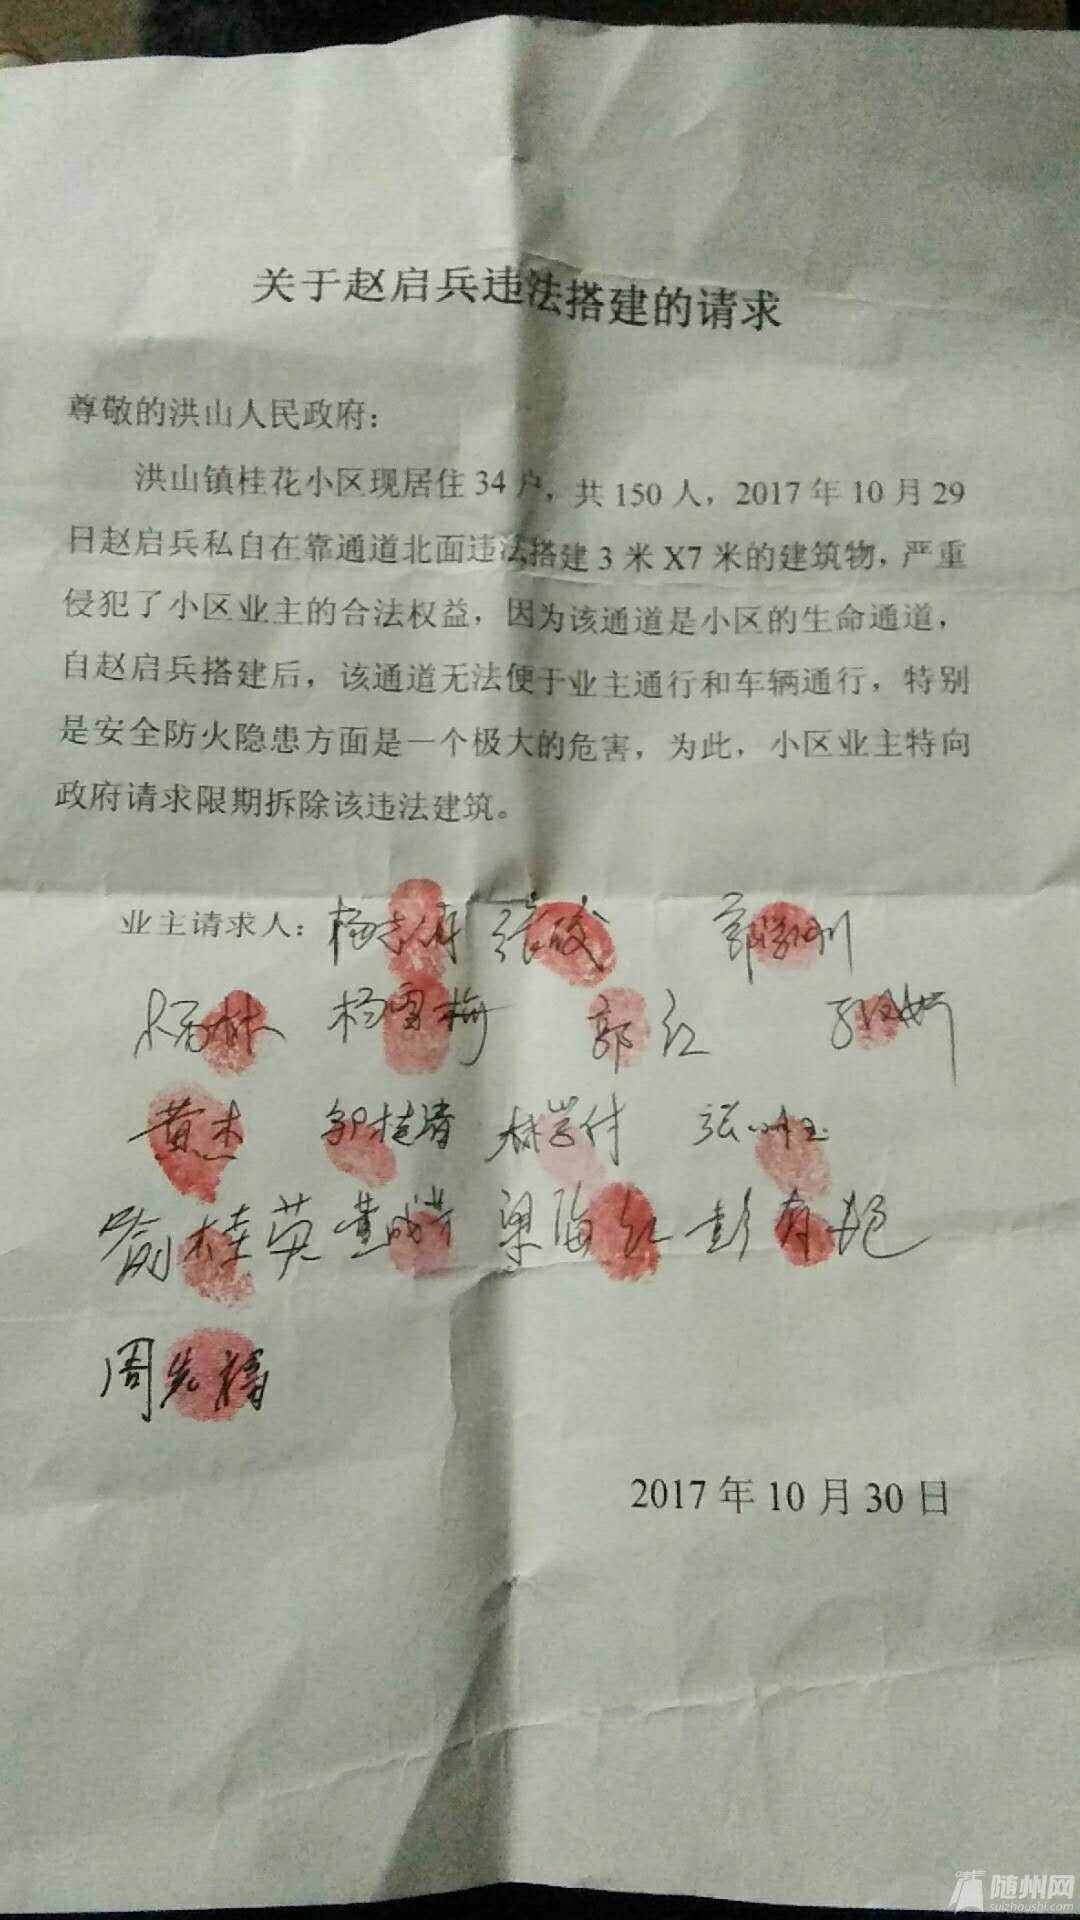 关于赵启兵违法搭建的请求
尊敬的洪山人民政府：
洪山镇桂花小区现居住34户，共150人，2017年10月29
日赵启兵私自在靠通道北面违法搭建3米X7米的建筑物，严重
侵犯了小区业主的合法权益，因为该通道是小区的生命通道，
自赵启兵搭建后，该通道无法便于业主通行和车辆通行，特别
是安全防火隐患方面是一个极大的危害，为此，小区业主特向
政府请求限期拆除该违法建筑。
业主请求人：杨志 张俊
杨林 杨雪梅 郭红
黄杰 林学付
喻桂英 梁海红 彭有艳
周先
2017年10月30日
随州网
suizhoushi.com